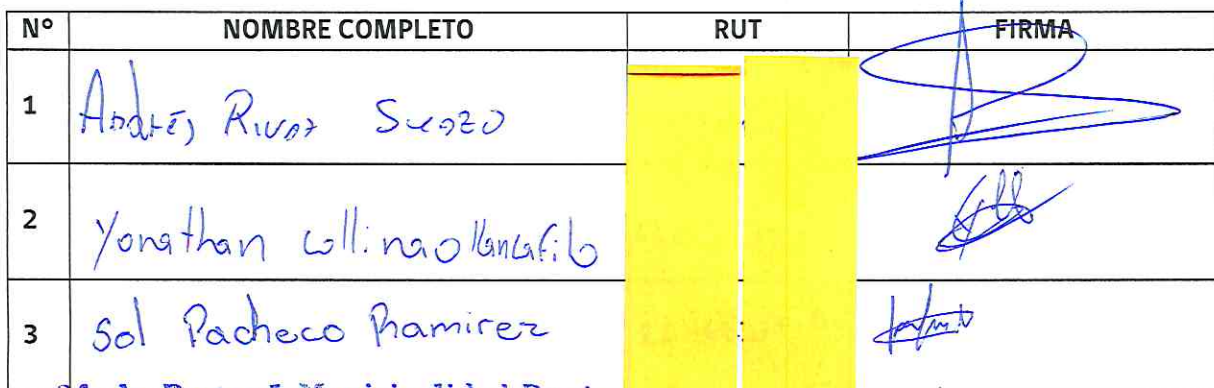 N° NOMBRE COMPLETO RUT FIRMA
1 Andrés Rivas Suazo
2 Yonathan Collinao llancafilo
3 Sol Pacheco Ramirez